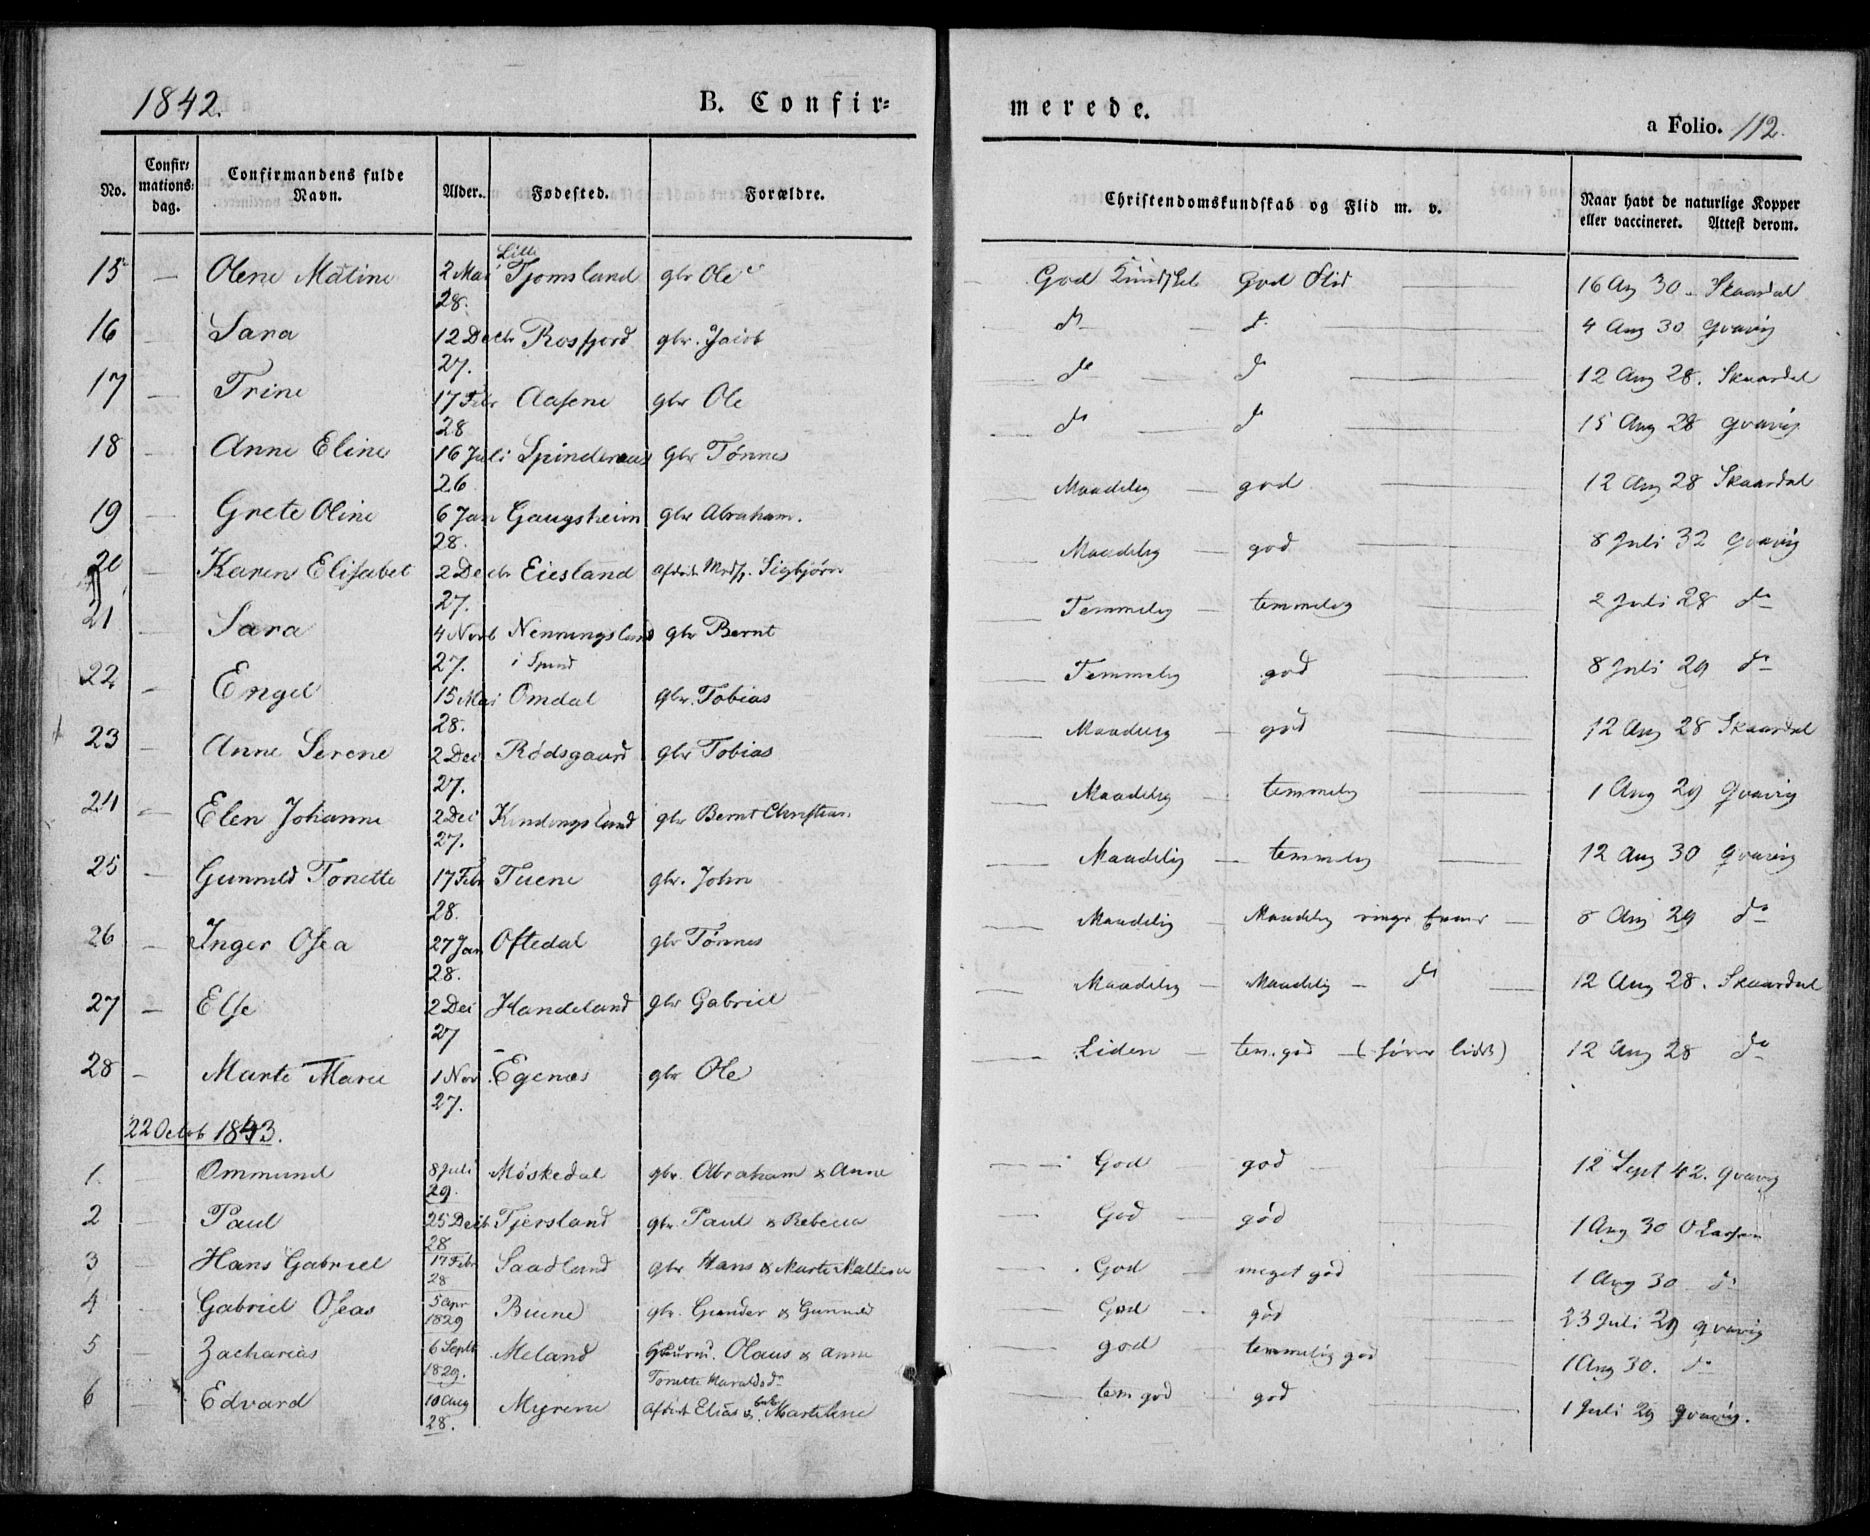 1842.
B. Confir=
merede.
a Folio. 112.
No.
Confir=
mations=
dag.
Confirmandens fulde
Navn.
Alder.
Fødested.
Forældre.
Christendomskundskab og Flid m. v.
Naar havt de naturlige Kopper
eller vaccineret. Attest derom.
Lille
15 — Olene Matine 2 Mai Tjomsland gbr Ole God Kundskb God Flid 16 Aug 30 Skaardal
28.
16 Sara 12 Decbr Rosfjord gbr. Jacob do do 4 Aug 30 Qvavig
27.
17 — Trine 17 Febr Aasene gbr Ole do do 12 Aug 28. Skaardal
28
18 Anne Eline 16 Juli gbr Tønnes do do 15 Aug 28 Qvavig
26
19 — Grete Oline 6 Jan Gaugsheim gbr Abraham. Maadelig — god 12 Aug 28 Skaardal
28.
20 — Karen Elisabet 2 Decbr Eiesland Sigbjørn Maadelig — god 8 Juli 32 Qvavig
27.
21 — Sara 4 Novb Nenningsland gbr Bernt Temmelig — temmelig 2 Juli 28 do
27. i Spind
22 — Engel 15 Mai Omdal gbr. Tobias Temmelig god 8 Juli 29 do
28.
23 — Anne Serene 2 Dec Rødsgaard gbr Tobias Maadelig — god 12 Aug 28 Skaardal
27.
24 — Elen Johanne 2 Dec gbr Bernt Christian Maadelig — temmelig 1 Aug 29 Qvavig
27.
25 — Gunnild Tonette 17 Febr Tuene gbr. John Maadelig — temmelig 12 Aug 30 Qvavig
28.
26 — Inger Osea 27 Jan Oftedal gbr Tønnes Maadelig — Maadelig 8 Aug 29 do
28.
27 — Else 2 Dec Handeland gbr Gabriel Maadelig — Maadelig — do 12 Aug 28. Skaardal
27
28 — Marte Marie 1 Nov Egenæs gbr Ole Liden — tem. god — (hører lidet) 12 Aug 28 do
27.
22 Octob 1843.
1. Ommund 8 Juli Møskedal gbr. Abraham & Anne God god 12 Sept 42. Qvavig
29.
2 — Paul 25 Decb Tjersland gbr. Paul & Rebecca God god 1 Aug 30 O Larsen
28
3 — Hans Gabriel 17 Febr Saadland gbr. Hans & Marte Malene God meget god 1 Aug 30 do
28
4 — Gabriel Oseas 5 Apr Buene gbr. Gunder & Gunnild God god 23 Juli 29 Qvavig
1829
5 — Zacharias 6 Septb Meland Olaus & Anne god temmelig god 1 Aug 30. do
1829. Tonette Haraldsdr
6 — Edvard 10 Aug Myrene Elias & Marte Lene tem god god 1 Juli 29 Qvavig.
28.